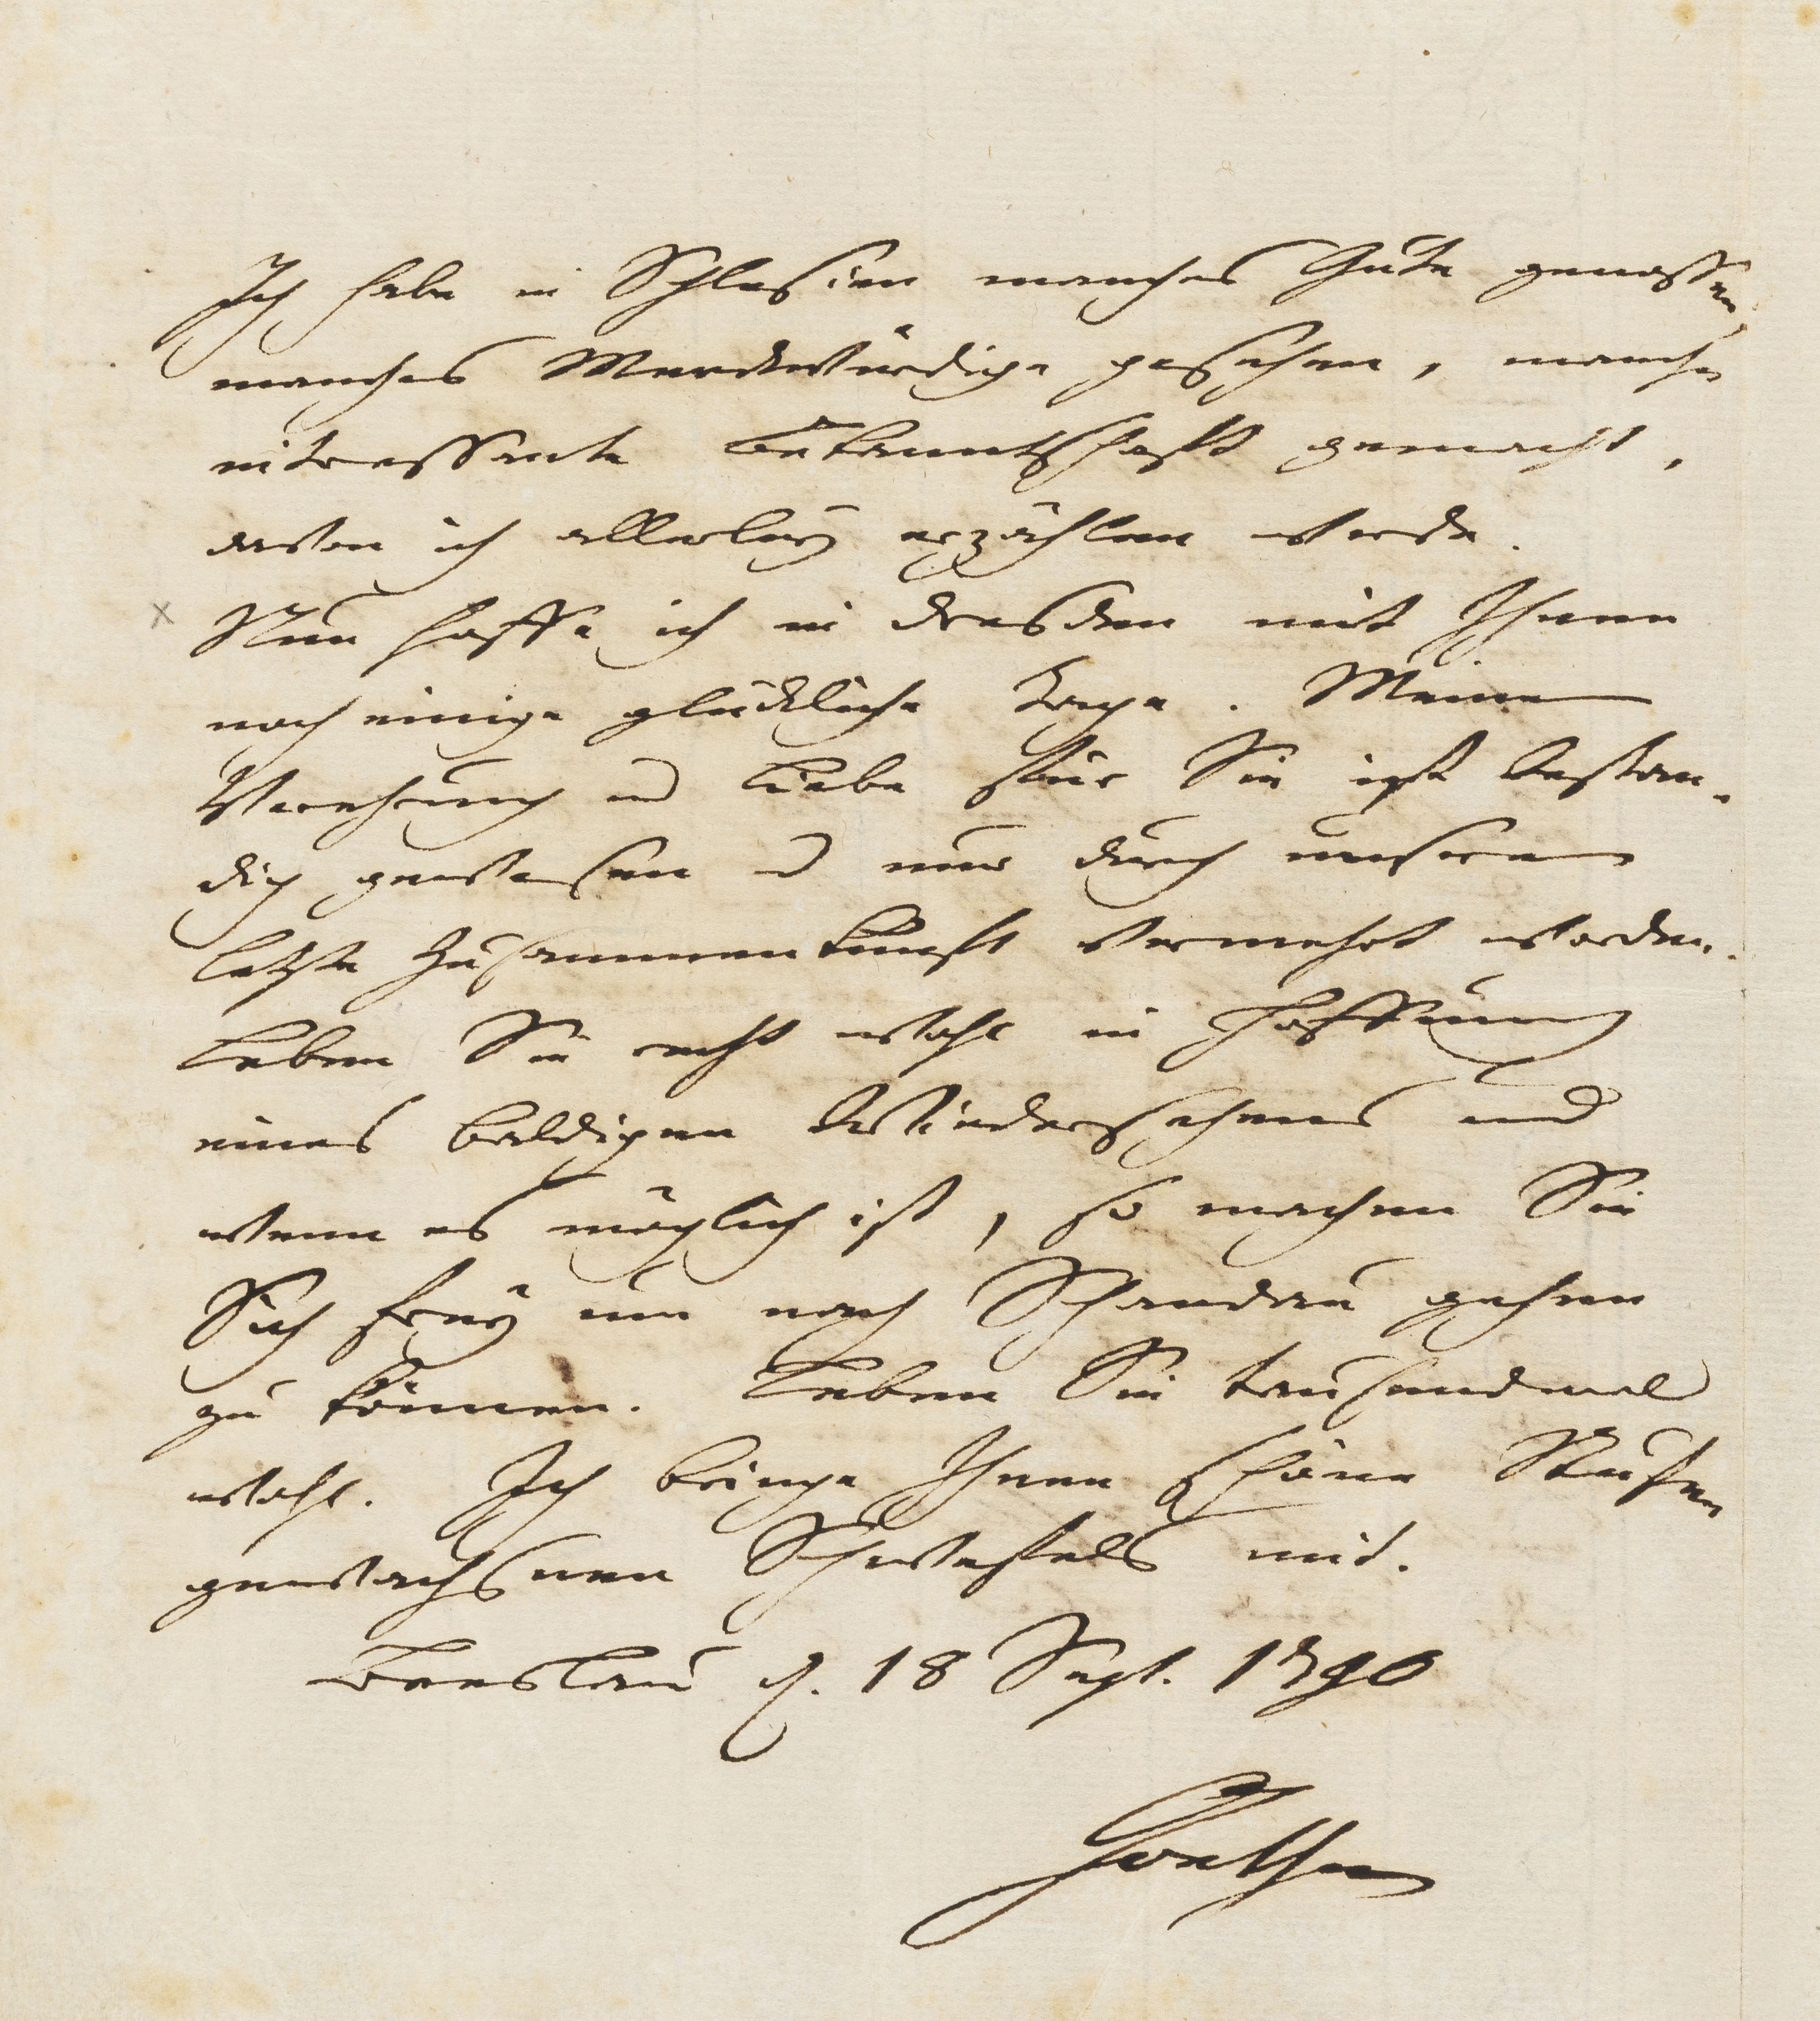 Ich habe in Schlesien manches Gute genossen,
manches Merckwürdige gesehen, manche
intressante Bekanntschafft gemacht,
davon ich allerley erzählen werde.
Nun hoffe ich in Dresden mit Ihnen
noch einige glückliche Tage. Meine
Verehrung und Liebe für Sie ist bestän-
dig gewesen und nur durch unsere
letzte Zusammenkunft vermehrt worden.
Leben Sie recht wohl in Hoffnung
eines baldigen Wiedersehens und
wenn es möglich ist, so machen Sie
Sich frey um nach Schandau gehen
zu können. Leben Sie tausendmal
wohl. Ich bringe Ihnen schöne Stufen
gewachsnen Schwefels mit.
Breslau d. 18 Sept. 1790
Goethe